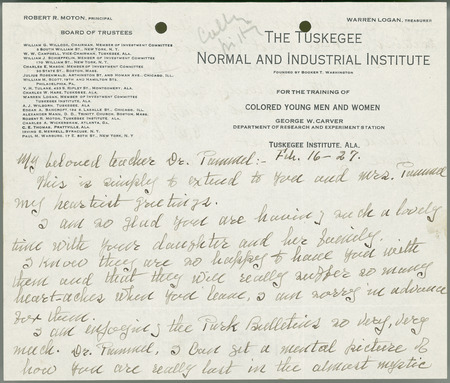 ROBERT R. MOTON, PRINCIPAL
WARREN LOGAN, TREASURER
BOARD OF TRUSTEES
WILLIAM G. WILLCOX, CHAIRMAN, MEMBER OF INVESTMENT COMMITTEE
3 SOUTH WILLIAM ST., NEW YORK, N. Y.
W. W. CAMPBELL, VICE-CHAIRMAN, TUSKEGEE, ALA.
WILLIAM J. SCHIEFFELIN, MEMBER OF INVESTMENT COMMITTEE
170 WILLIAM ST., NEW YORK, N. Y.
CHARLES E. MASON, MEMBER OF INVESTMENT COMMITTEE
STATE ST., BOSTON, MASS.
JULIUS ROSENWALD, ARTHINGTON ST. AND HOMAN AVE., CHICAGO, ILL.
WILLIAM M. SCOTT, 18TH AND HAMILTON STS.
PHILADELPHIA, PA.
V. H. TULANE, RIPLEY ST., MONTGOMERY, ALA.
CHARLES W. HARE, TUSKEGEE, ALA.
WARREN LOGAN, MEMBER OF INVESTMENT COMMITTEE
TUSKEGEE INSTITUTE, ALA.
A. J. WILBORN, TUSKEGEE, ALA.
EDGAR A. BANCROFT, LA SALLE ST., CHICAGO, ILL.
ALEXANDER MANN, D. D., TRINITY CHURCH, BOSTON, MASS.
ROBERT R. MOTON, TUSKEGEE INSTITUTE, ALA.
CHARLES A. WICKERSHAM, ATLANTA, GA.
G. E. THOMAS, PRATTVILLE, ALA.
IRVING S. MERRELL, SYRACUSE, N. Y.
PAUL M. WARBURG, 17 E. 80TH ST., NEW YORK, N. Y.
THE TUSKEGEE
NORMAL AND INDUSTRIAL INSTITUTE
FOUNDED BY BOOKER T. WASHINGTON
FOR THE TRAINING OF
COLORED YOUNG MEN AND WOMEN
GEORGE W. CARVER
DEPARTMENT OF RESEARCH AND EXPERIMENT STATION
TUSKEGEE INSTITUTE, ALA.
My beloved teacher Dr. Pammel:- Feb. 16-27.
This is simply to extend to you and Mrs. Pammel
my heartiest greetings.
I am so glad you are having such a lovely
time with your daughter and her family.
I know they are so happy to have you with
them and that they will really suffer so many
heart-aches when you leave, I am sorry in advance
for them.
I am enjoying the Park Bulletins so very, very
much. Dr. Pammel, I can get a mental picture of
how you are really lost in the almost mystic